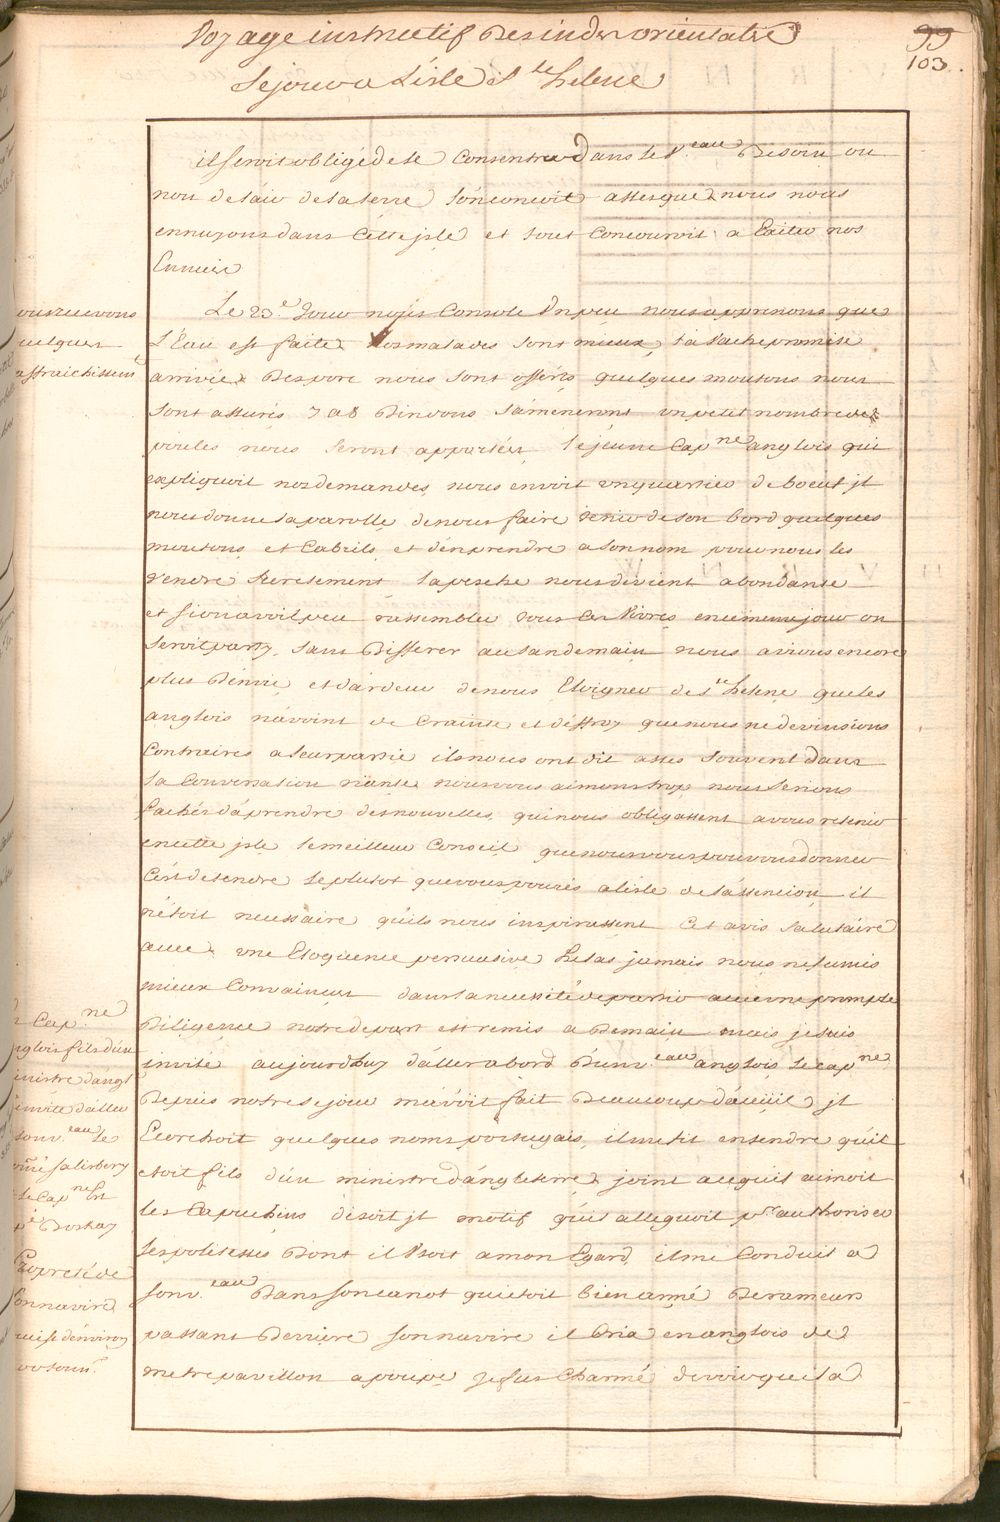 Voyage instructif des indes orientales
99
103
Sejour a L'isle de Ste helene
il seroit obligé de se Consentrer dans le v.eau Besoin ou
non de l'air de la terre l'on conçoit asses que nous nous
ennuyons dans Cette isle et tout Concouroit a Exiter nos
Ennuis
Le 23.e Jour nous Console Un peu nous apprenons que
L'Eau est faite nos malades sont mieux, la vache promise
arrivée Des porc nous sont offerts quelques moutons nous
sont assurés 7 a 8 Dindons s'ameneront un petit nombre de
poules nous seront apportées le jeune Capne anglois qui
expliquoit nos demandes nous envoit un quartier de boeuf jl
nous donne sa parolle de nous faire venir de son bord quelques
moutons et Cabrils et d'en prendre a son nom pour nous les
vendre secretement la pesche nous devient abondante
et si on avoit peu rassembler tous Ces Vivres en un meme jour on
seroit party sans Differer au landemain nous avions encore
plus D'envie et d'ardeur de nous Eloigner de Ste helene que les
anglois n'avoint de Crainte et d'effroy que nous ne devinsions
Contraires a leur partie ils nous ont dit asses souvent dans
la Conversation riante nous vous aimons trop nous serions
fachés d'aprendre des nouvelles qui nous obligassent a vous retenir
en cette jsle le meilleur Conseil que nous vous pouvons donner
C'est de tendre le plutot que vous pourés a l'isle de l'assention il
n'etoit necessaire qu'ils nous inspirassent Cet avis salutaire
avec une Eloquence persuasive helas jamais nous ne fumes
mieux Convaincus dans la necessité de partir avec une prompte
Diligence notre depart est remis a Demain mais je suis
invité aujourd'huy d'aller a bord d'un v.eau anglois le capne
Depuis notre sejour m'avoit fait Beaucoup d'acueil jl
Ecorchoit quelques noms portugais, il me fit entendre qu'il
etoit fils d'un ministre d'angleterre joint au quil aimoit
les Capuchins disoit jl motif qu'il alleguoit pr authoriser
les politesses Dont il Usoit a mon Egard il me Conduit a
son v.eau Dans son canot qui etoit bien armé De rameurs
passant Derriere son navire il Cria en anglois de
metre pavillon a poupe je fus Charmé de voir qu'il a
ous recevons
uelques
affraichissem
Capne
nglois fils d'un
inistre d'angl
invite d'aller
son v.eau le
omé salisbery
le Capne
Propreté de
son navire